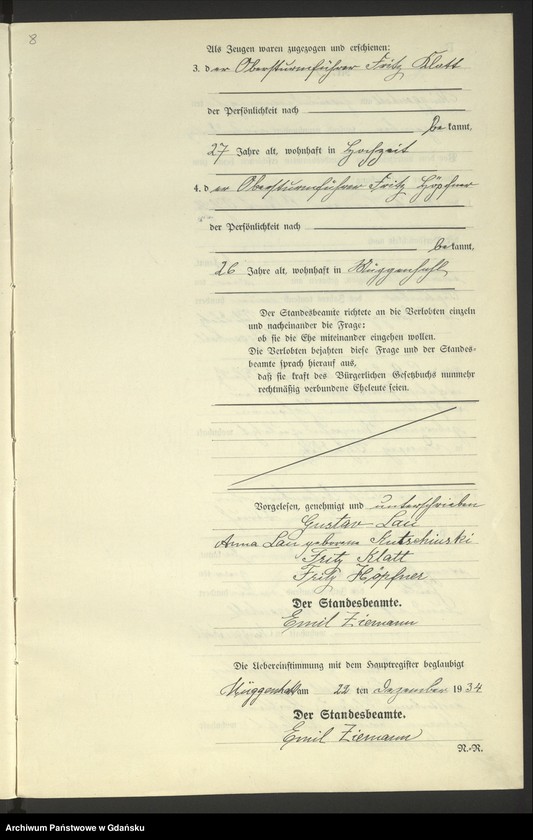 8
Als Zeugen waren zugezogen und erschienen:
3. der Obersturmführer Fritz Klatt
der Persönlichkeit nach
bekannt,
27 Jahre alt, wohnhaft in Hochzeit
4. der Obersturmführer Fritz Höpfner
der Persönlichkeit nach
bekannt,
26 Jahre alt, wohnhaft in Müggenhahl
Der Standesbeamte richtete an die Verlobten einzeln
und nacheinander die Frage:
ob sie die Ehe miteinander eingehen wollen.
Die Verlobten bejahten diese Frage und der Standes-
beamte sprach hierauf aus,
daß sie kraft des Bürgerlichen Gesetzbuchs nunmehr
rechtmäßig verbundene Eheleute seien.
Vorgelesen, genehmigt und unterschrieben
Gustav Lau
Anna Lau geborene Kutschinski
Fritz Klatt
Fritz Höpfner
Der Standesbeamte.
Emil Ziemann
Die Uebereinstimmung mit dem Hauptregister beglaubigt
Müggenhahl am 22 ten Dezember 1934
Der Standesbeamte.
Emil Ziemann
N.-R.
Archiwum Państwowe w Gdańsku